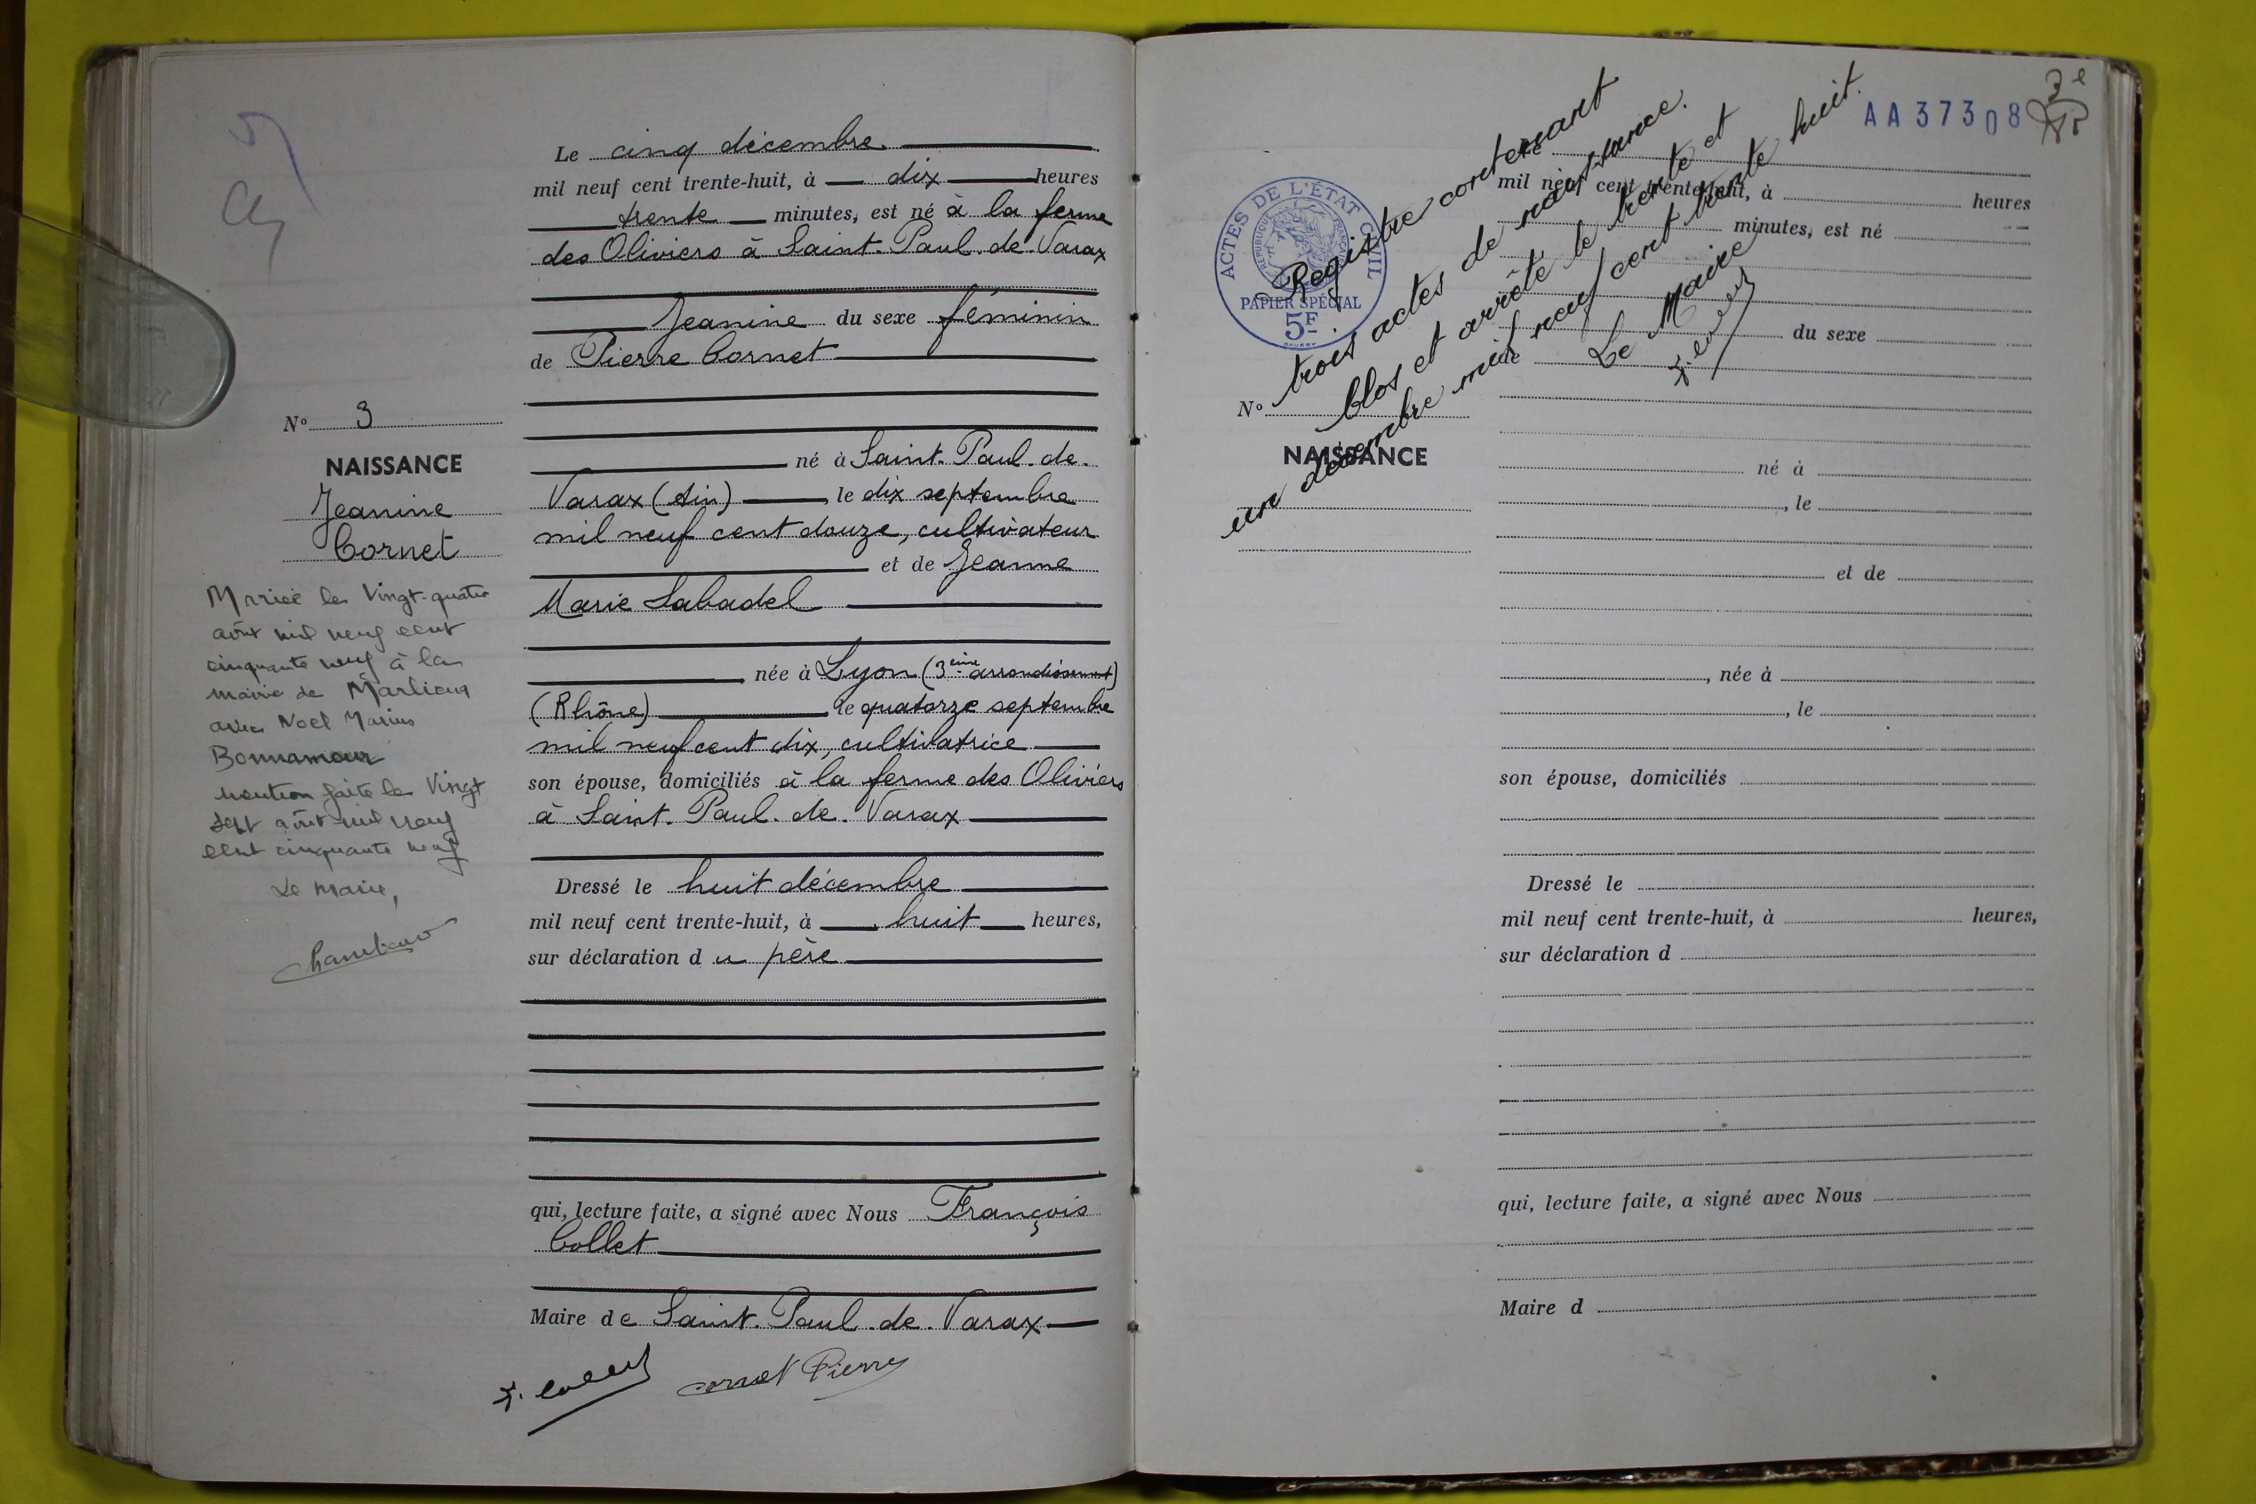 Le cinq décembre
mil neuf cent trente-huit, à dix heures
trente minutes, est né à la ferme
des Oliviers à Saint-Paul-de-Varax
Jeanine du sexe féminin
de Pierre Cornet
né à Saint-Paul-de-
Varax (Ain), le dix septembre
mil neuf cent douze, cultivateur
et de Jeanne
Marie Labadel
née à Lyon (3ème arrondissement)
(Rhône) le quatorze septembre
mil neuf cent dix, cultivatrice
son épouse, domiciliés à la ferme des Oliviers
à Saint-Paul-de-Varax
Dressé le huit décembre
mil neuf cent trente-huit, à huit heures,
sur déclaration du père
qui, lecture faite, a signé avec Nous François
Collet
Maire de Saint-Paul-de-Varax
F. Collet Cornet Pierre
N° 3
NAISSANCE
Jeanine
Cornet
Mariée le Vingt-quatre
août mil neuf cent
cinquante neuf à la
mairie de Marlieux
avec Noel Marius
Bonnamour
mention faite le Vingt
sept août mil neuf
cent cinquante neuf
Le Maire,
AA37308
3e
ACTES DE L'ÉTAT CIVIL
RÉPUBLIQUE FRANÇAISE
PAPIER SPÉCIAL
5F
Registre contenant
trois actes de naissance.
Clos et arrêté le trente et
un décembre mil neuf cent trente huit.
Le Maire
F. Collet
mil neuf cent trente-huit, à heures
minutes, est né
du sexe
de
N°
NAISSANCE
né à
, le
et de
, née à
, le
son épouse, domiciliés
Dressé le
mil neuf cent trente-huit, à heures,
sur déclaration d
qui, lecture faite, a signé avec Nous
Maire d